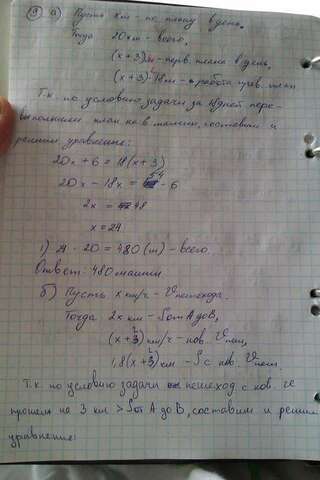 ③ а) Пусть x м - по плану в день.
Тогда 20x м - всего,
(x+3) м - перв. плана в день,
(x+3)·18 м - работа прев. план
Т.к. по условию задачи за 18 дней пере-
выполнили план на 6 машин, составим и
решим уравнение:
20x + 6 = 18(x+3)
20x - 18x = 54 - 6
2x = 48
x = 24
1) 24 · 20 = 480 (м) - всего.
Ответ: 480 машин.
б) Пусть x км/ч - Vпешехода.
Тогда 2x км - S от A до B,
км/ч - нов. Vпеш,
км - S с нов. Vпеш.
Т.к. по условию задачи пешеход с нов.
прошел на 3 км > S от A до B, составим и решим
уравнение: